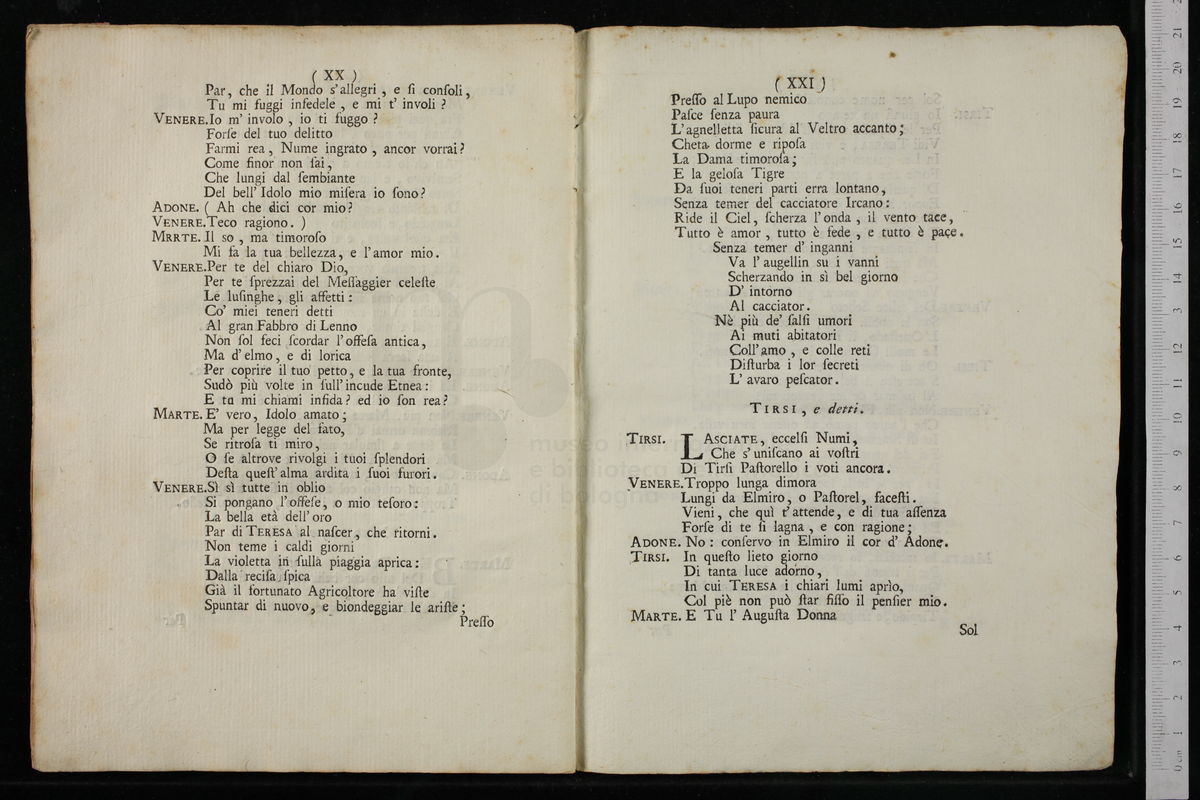 ( XX )
Par, che il Mondo s'allegri, e ſi conſoli,
Tu mi fuggi infedele, e mi t'involi?
VENERE. Io m'involo, io ti fuggo?
Forſe del tuo delitto
Farmi rea, Nume ingrato, ancor vorrai?
Come finor non ſai,
Che lungi dal ſembiante
Del bell'Idolo mio miſera io ſono?
ADONE. ( Ah che dici cor mio?
VENERE. Teco ragiono. )
MRRTE. Il so, ma timoroſo
Mi fa la tua bellezza, e l'amor mio.
VENERE. Per te del chiaro Dio,
Per te ſprezzai del Meſſaggier celeſte
Le luſinghe, gli affetti:
Co' miei teneri detti
Al gran Fabbro di Lenno
Non ſol feci ſcordar l'offeſa antica,
Ma d'elmo, e di lorica
Per coprire il tuo petto, e la tua fronte,
Sudò più volte in full'incude Etnea:
E tu mi chiami infida? ed io ſon rea?
MARTE. E' vero, Idolo amato;
Ma per legge del fato,
Se ritroſa ti miro,
O ſe altrove rivolgi i tuoi ſplendori
Deſta queſt'alma ardita i ſuoi furori.
VENERE. Sì sì tutte in oblio
Si pongano l'offeſe, o mio teſoro:
La bella età dell'oro
Par di TERESA al naſcer, che ritorni.
Non teme i caldi giorni
La violetta in ſulla piaggia aprica:
Dalla reciſa ſpica
Già il fortunato Agricoltore ha viſte
Spuntar di nuovo, e biondeggiar le ariſte;
Preſſo
( XXI )
Preſſo al Lupo nemico
Paſce ſenza paura
L'agnelletta ſicura al Veltro accanto;
Cheta dorme e ripoſa
La Dama timoroſa;
E la geloſa Tigre
Da ſuoi teneri parti erra lontano,
Senza temer del cacciatore Ircano:
Ride il Ciel, ſcherza l'onda, il vento tace,
Tutto è amor, tutto è fede, e tutto è pace.
Senza temer d'inganni
Va l'augellin su i vanni
Scherzando in sì bel giorno
D'intorno
Al cacciator.
Nè più de' ſalſi umori
Ai muti abitatori
Coll'amo, e colle reti
Diſturba i lor ſecreti
L'avaro peſcator.
TIRSI, e detti.
TIRSI. LASCIATE, eccelſi Numi,
Che s'uniſcano ai voſtri
Di Tirſi Paſtorello i voti ancora.
VENERE. Troppo lunga dimora
Lungi da Elmiro, o Paſtorel, faceſti.
Vieni, che quì t'attende, e di tua aſſenza
Forſe di te ſi lagna, e con ragione;
ADONE. No: conſervo in Elmiro il cor d'Adone.
TIRSI. In queſto lieto giorno
Di tanta luce adorno,
In cui TERESA i chiari lumi aprìo,
Col piè non può ſtar fiſſo il penſier mio.
MARTE. E Tu l'Auguſta Donna
Sol